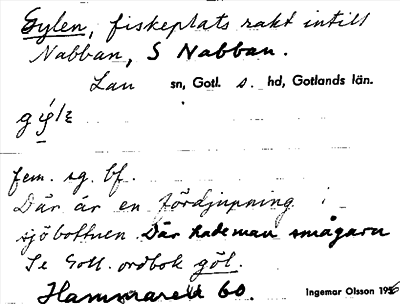 Gylen, fiskeplats rakt intill
Nabban, S Nabban.
Lau sn, Gotl. s. hd, Gotlands län.
fem. sg. bf.
Där är en fördjupning i
sjöbottnen Där hade man smågarn
Se Gotl. ordbok göl.
Hammaren 60. Ingemar Olsson 1956